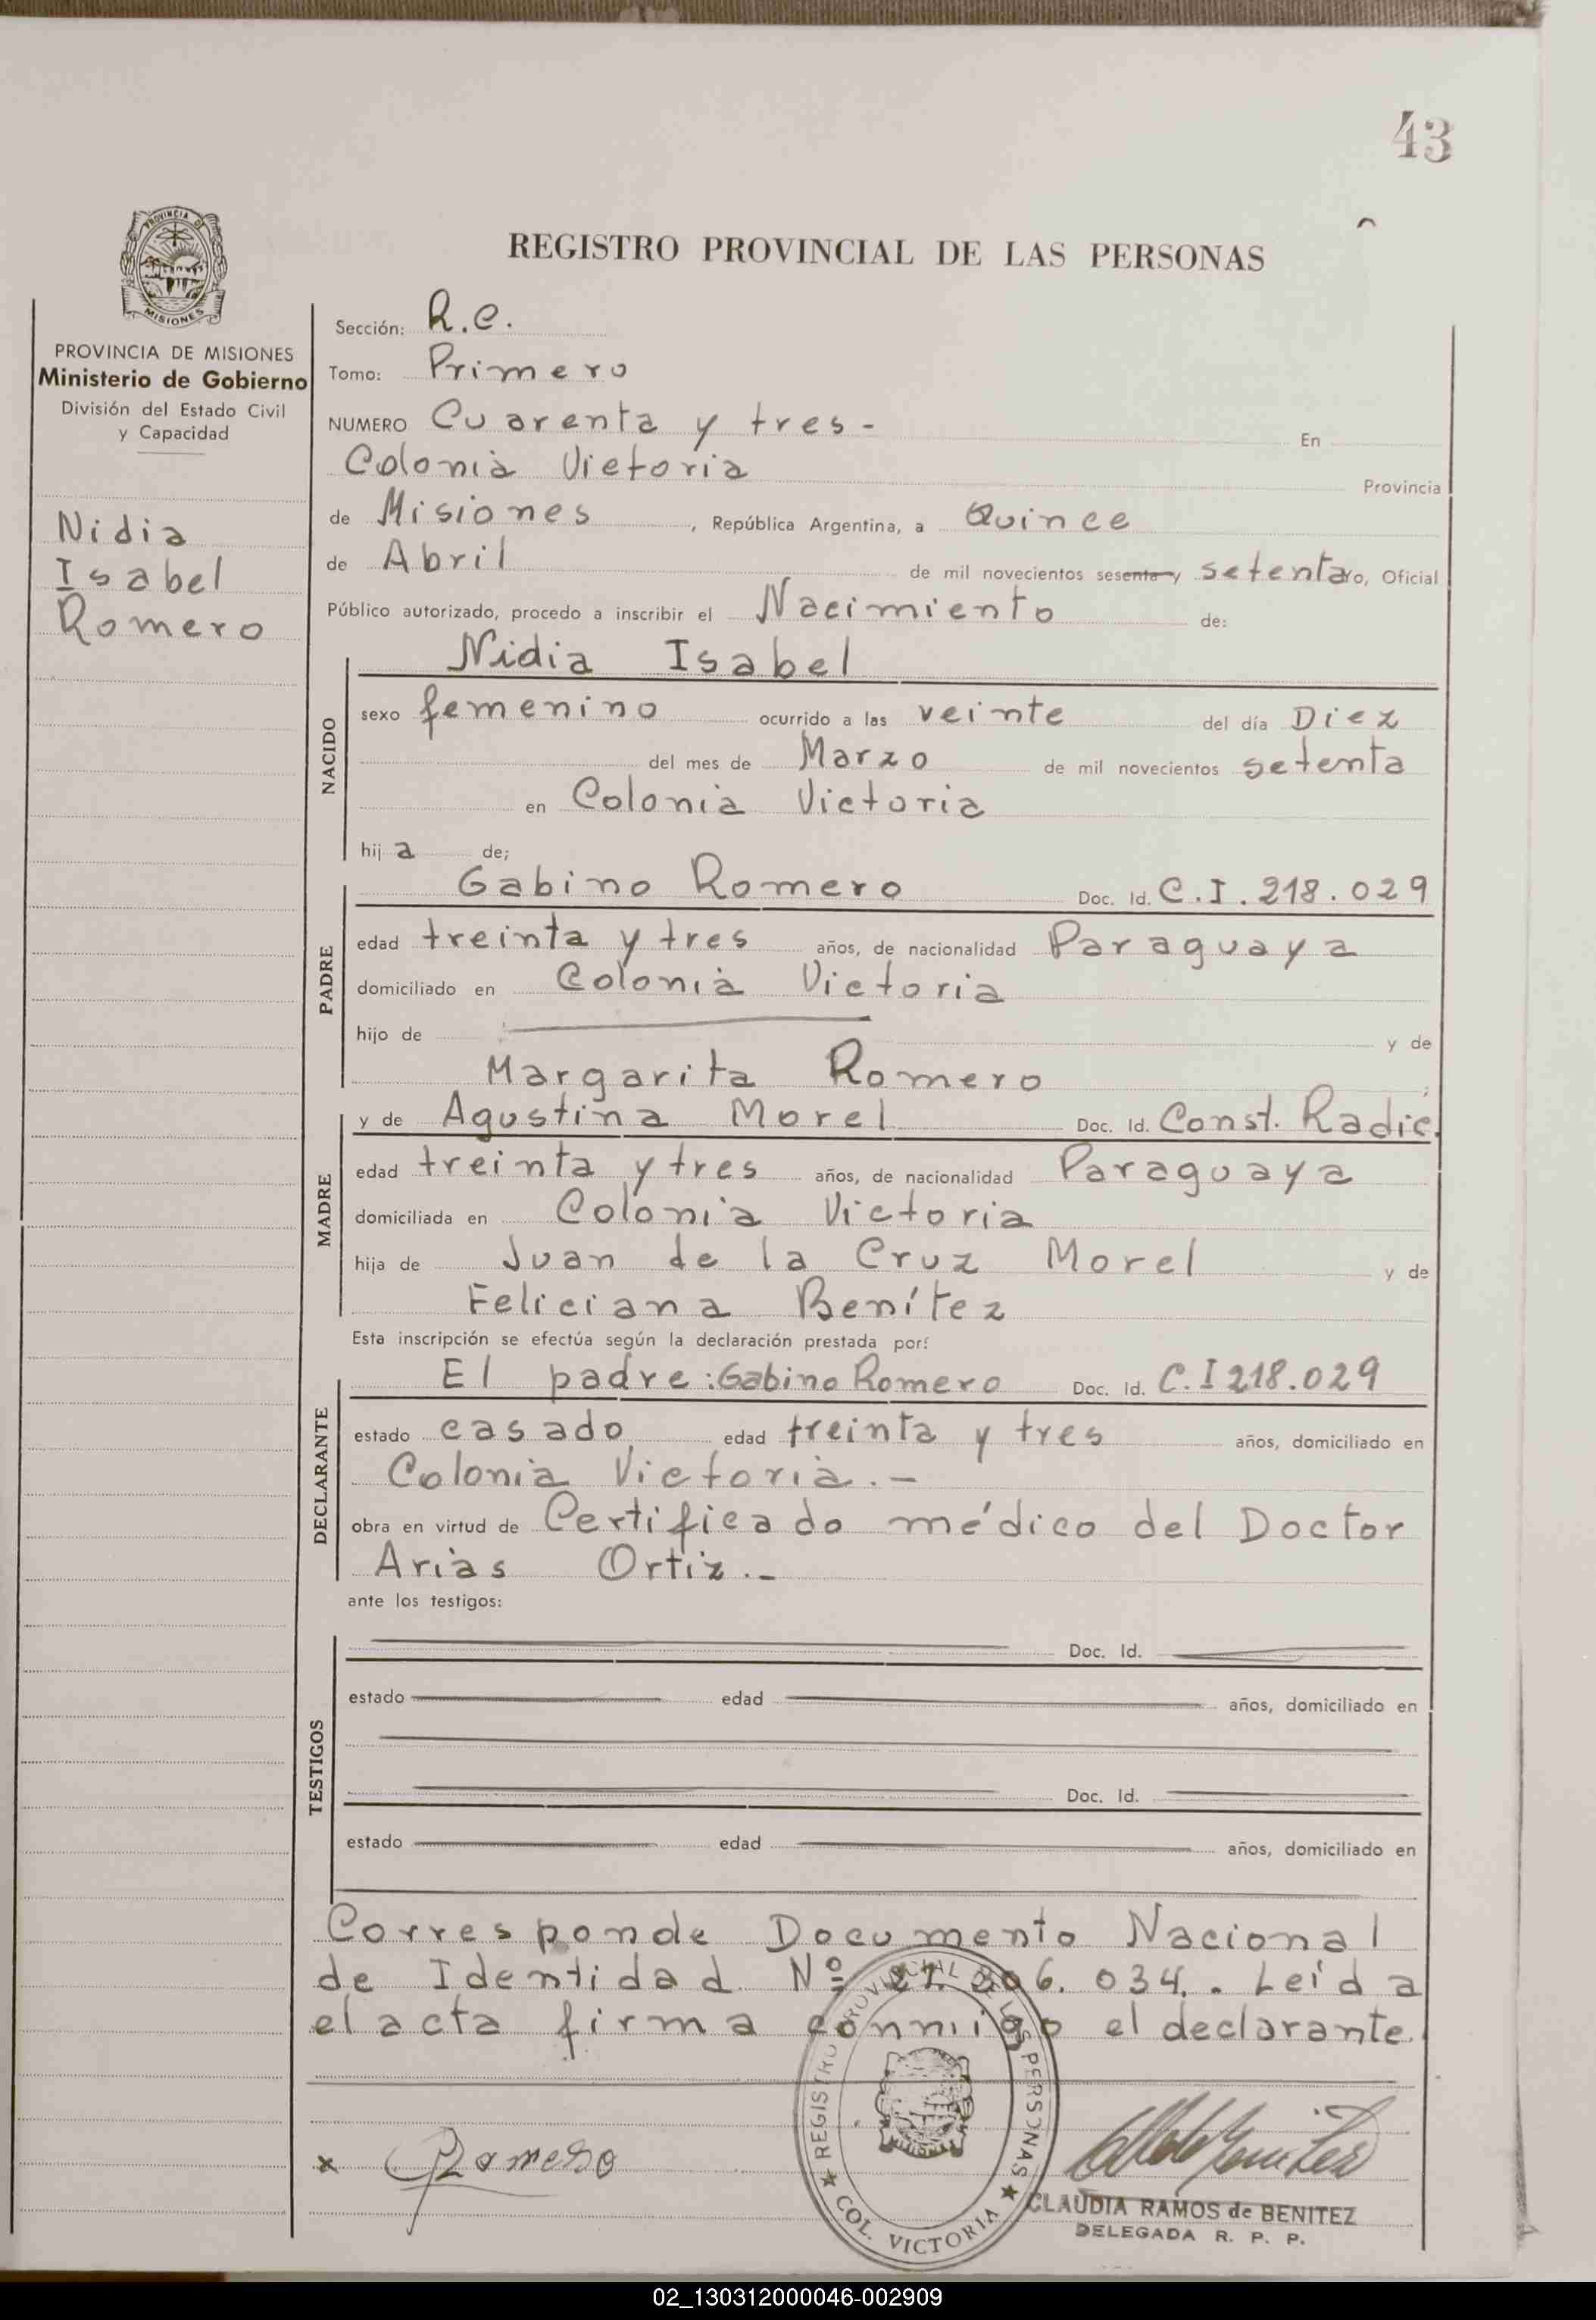 43
REGISTRO PROVINCIAL DE LAS PERSONAS
PROVINCIA DE
MISIONES
PROVINCIA DE MISIONES
Ministerio de Gobierno
División del Estado Civil
y Capacidad
Nidia
Isabel
Romero
Sección: R.C.
Tomo: Primero
NUMERO Cuarenta y tres - En
Colonia Victoria Provincia
de Misiones, República Argentina, a Quince
de Abril de mil novecientos sesenta y setenta yo, Oficial
Público autorizado, procedo a inscribir el Nacimiento de:
Nidia Isabel
NACIDO
sexo femenino ocurrido a las veinte del día Diez
del mes de Marzo de mil novecientos setenta
en Colonia Victoria
hij a de;
PADRE
Gabino Romero Doc. Id. C.I. 218.029
edad treinta y tres años, de nacionalidad Paraguaya
domiciliado en Colonia Victoria
hijo de y de
Margarita Romero ;
MADRE
y de Agustina Morel Doc. Id. Const. Radic.
edad treinta y tres años, de nacionalidad Paraguaya
domiciliada en Colonia Victoria
hija de Juan de la Cruz Morel y de
Feliciana Benítez
Esta inscripción se efectúa según la declaración prestada por:
DECLARANTE
El padre: Gabino Romero Doc. Id. C.I 218.029
estado casado edad treinta y tres años, domiciliado en
Colonia Victoria.-
obra en virtud de Certificado médico del Doctor
Arias Ortiz.-
ante los testigos:
TESTIGOS
Doc. Id.
estado edad años, domiciliado en
Doc. Id.
estado edad años, domiciliado en
Corresponde Documento Nacional
de Identidad Nº 034.. Leída
el acta firma conmigo el declarante.
REGISTRO PROVINCIAL DE LAS PERSONAS
COL. VICTORIA
x Romero
CLAUDIA RAMOS de BENITEZ
DELEGADA R. P. P.
02_130312000046-002909